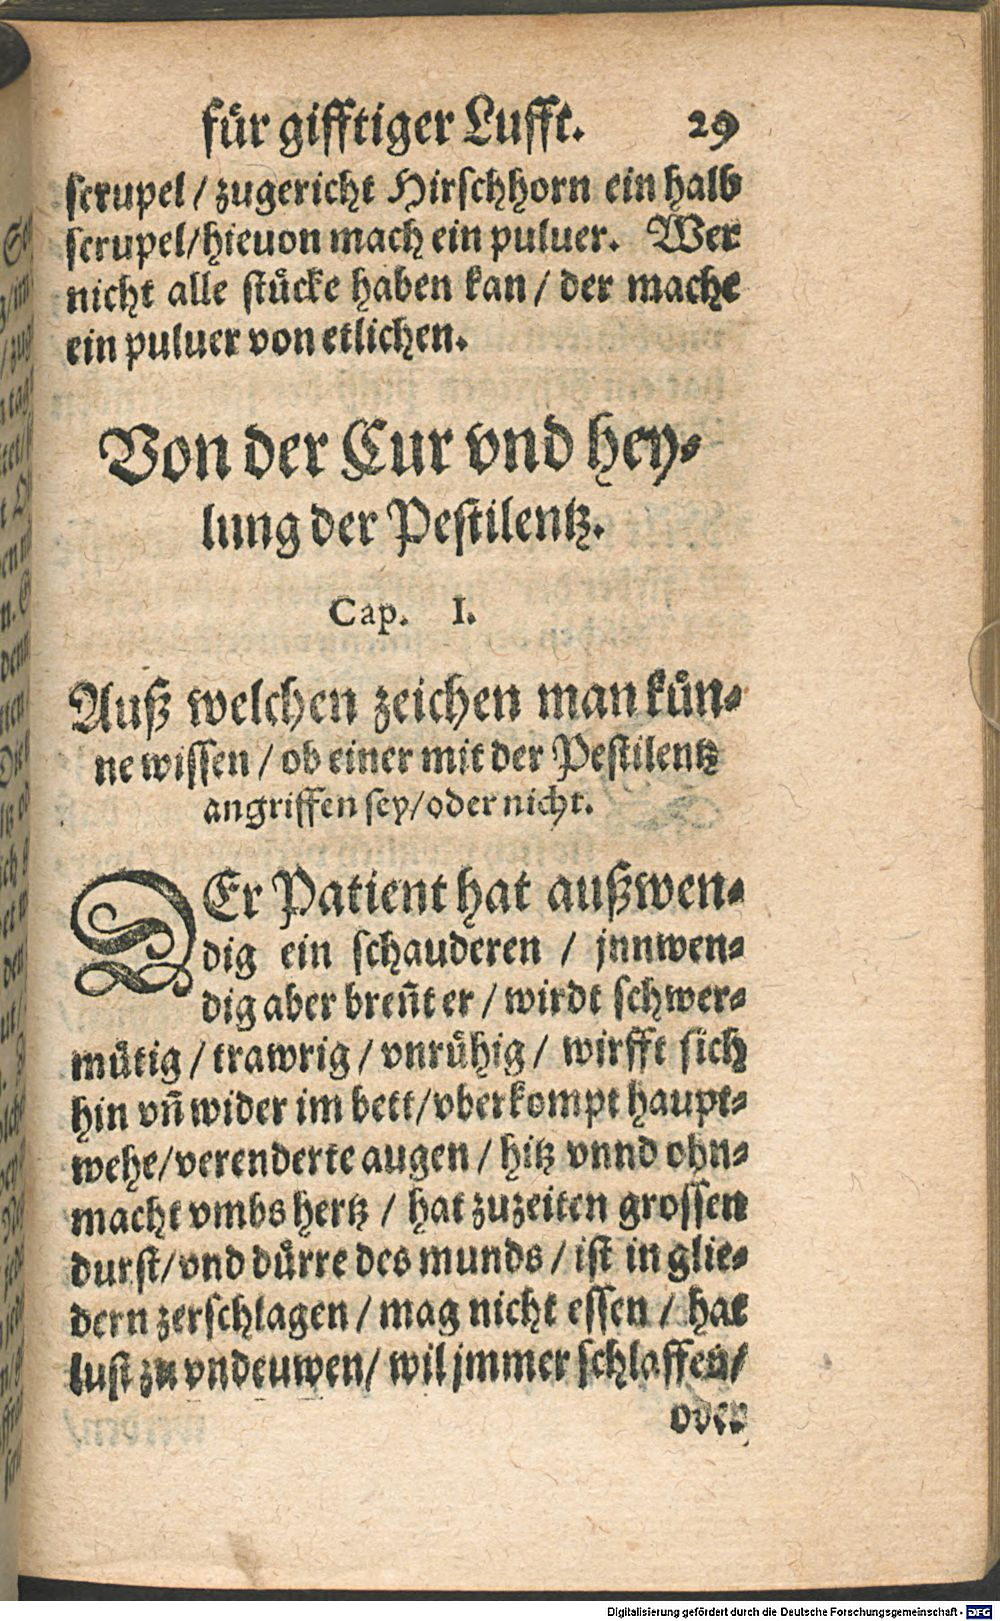 für gifftiger Lufft. 29
scrupel / zugericht Hirschhorn ein halb
scrupel/hieuon mach ein puluer. Wer
nicht alle stücke haben kan / der mache
ein puluer von etlichen.
Von der Cur vnd hey⸗
lung der Pestilentz.
Cap. I.
Auß welchen zeichen man kün⸗
ne wissen / ob einer mit der Pestilentz
angriffen sey/oder nicht.
DEr Patient hat außwen⸗
dig ein schauderen / jnnwen⸗
dig aber breñt er / wirdt schwer⸗
mütig / trawrig / vnrühig / wirfft sich
hin vñ wider im bett/vberkompt haupt⸗
wehe/verenderte augen / hitz vnnd ohn⸗
macht vmbs hertz / hat zuzeiten grossen
durst/vnd dürre des munds / ist in glie⸗
dern zerschlagen / mag nicht essen / hat
lust zu vndeuwen/ wil jmmer schlaffen/
oder
Digitalisierung gefördert durch die Deutsche Forschungsgemeinschaft - DFG